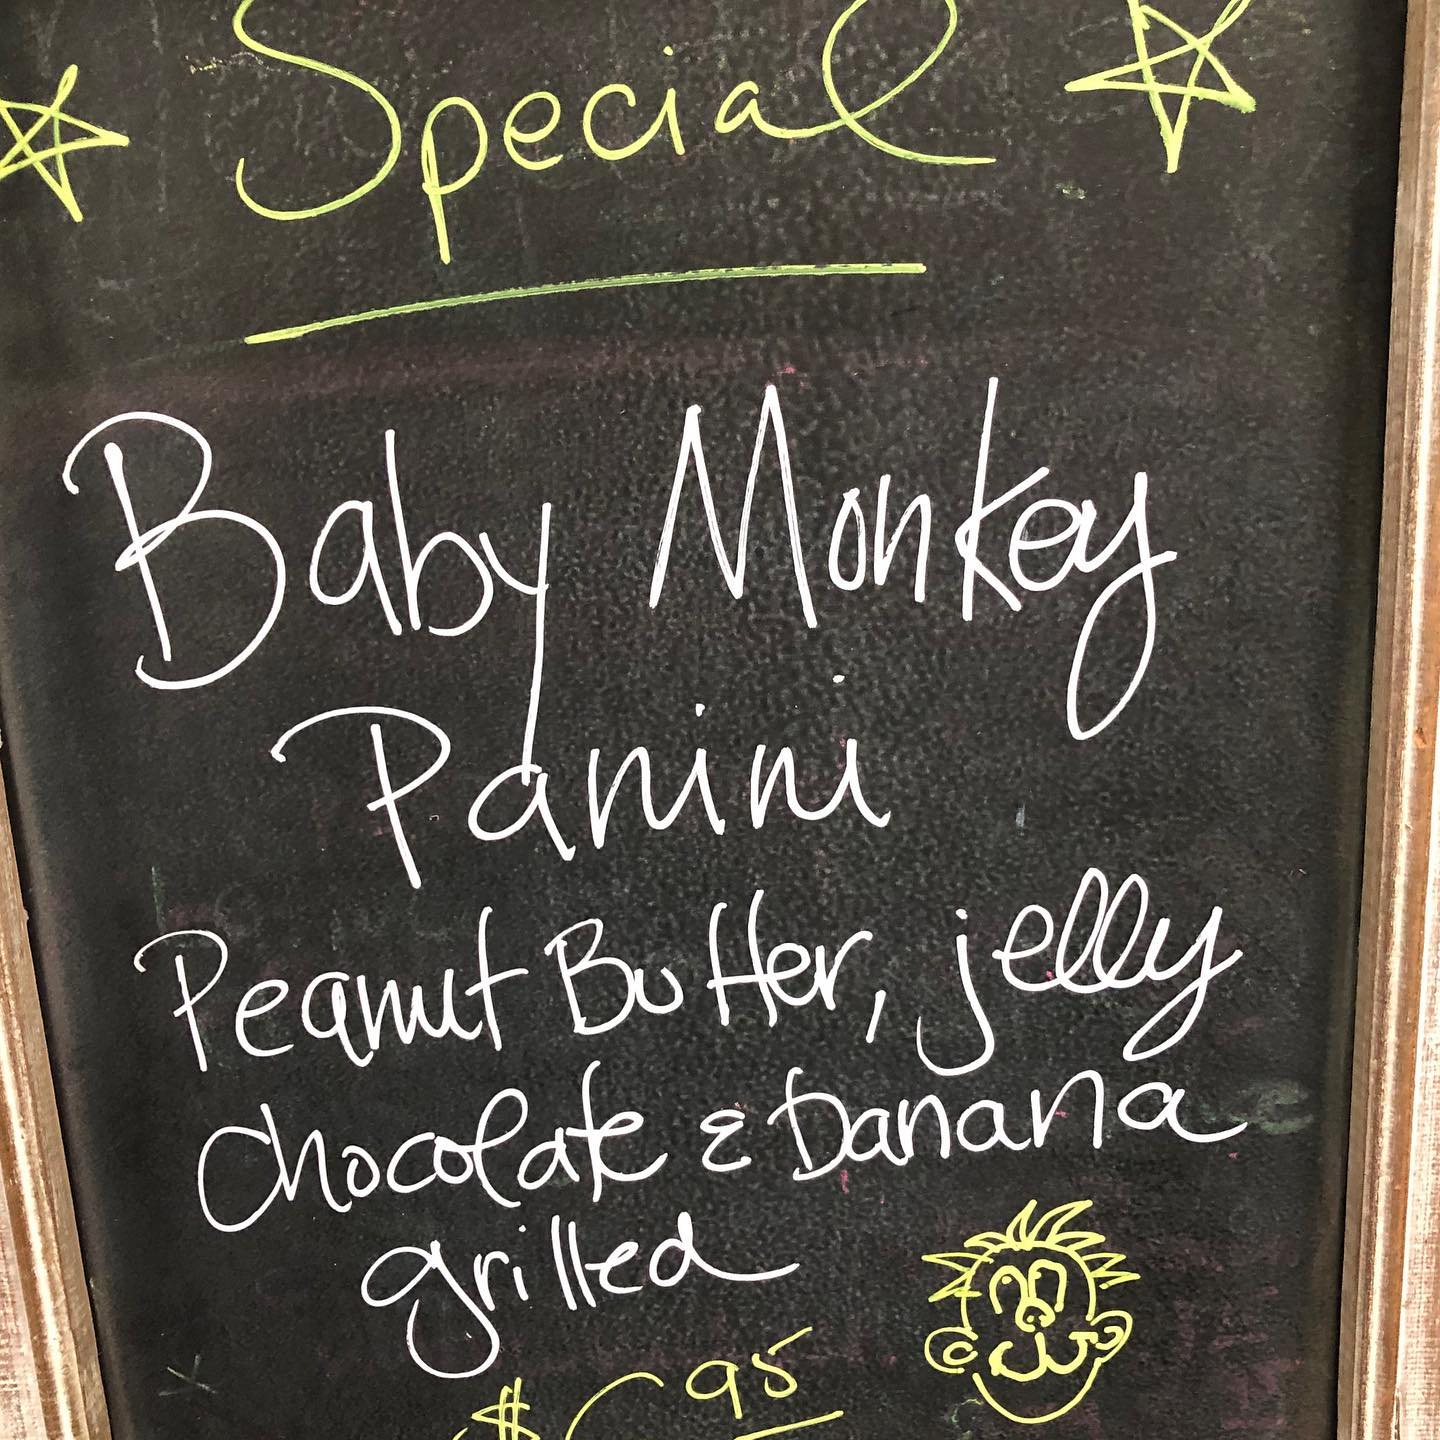 Special
Baby Monkey
Panini
Peanut Butter, jelly
Chocolate & Banana
grilled
$ 95